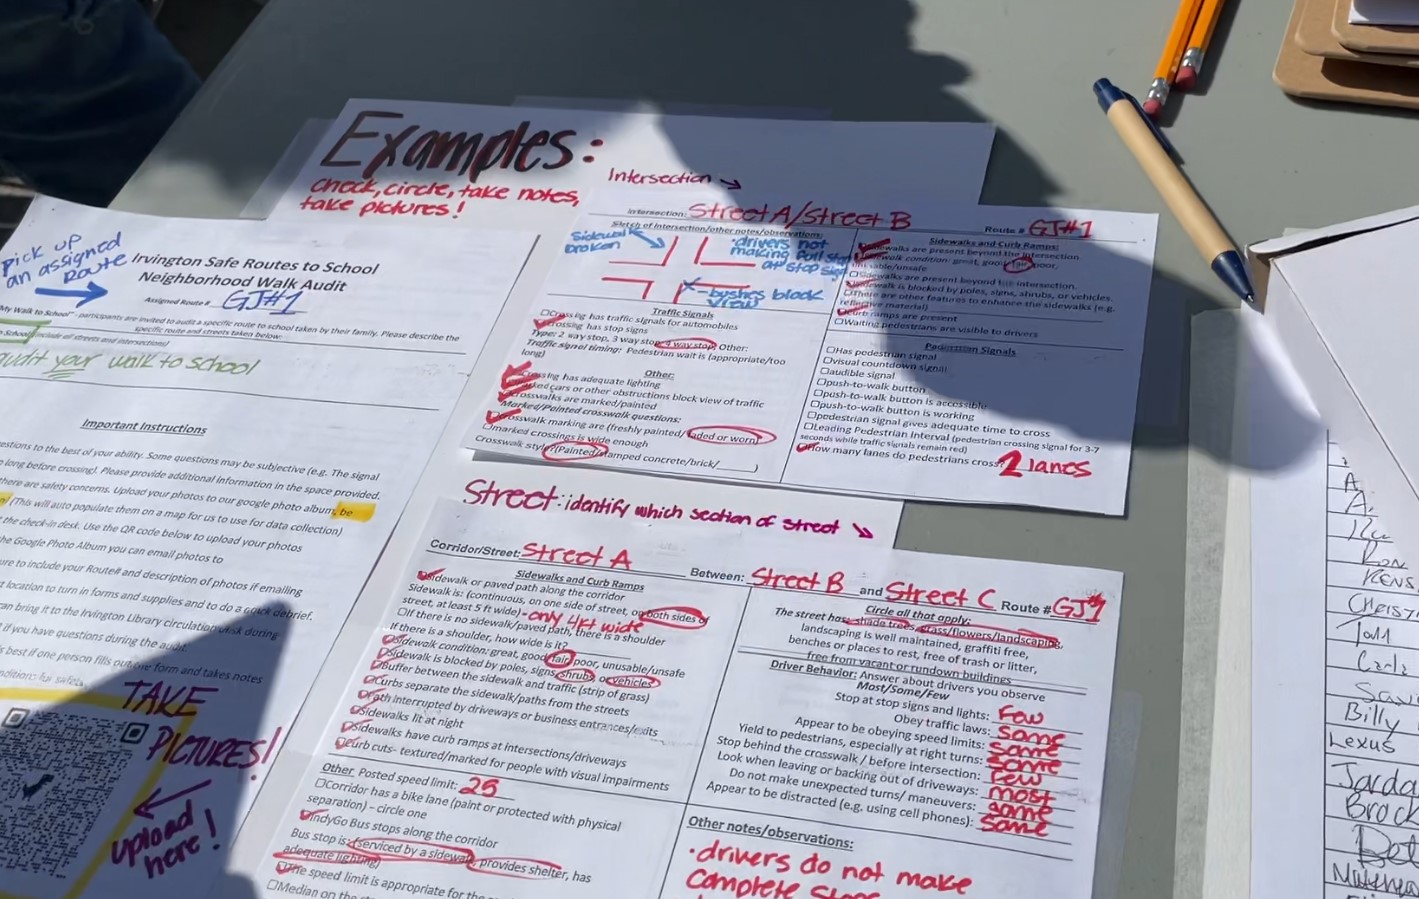 Examples:
check, circle, take notes,
take pictures!
Intersection →
Intersection: Street A/Street B
Route # GJ#1
Sketch of intersection/other notes/observations:
Sidewalk
broken
·drivers not
making full stop
at stop sign
bushes block
view
Traffic Signals
☐Crossing has traffic signals for automobiles
Crossing has stop signs
Type: 2 way stop, 3 way stop, 4 way stop, Other:
Traffic signal timing: Pedestrian wait is (appropriate/too
long)
Other:
Crossing has adequate lighting
Parked cars or other obstructions block view of traffic
Crosswalks are marked/painted
Marked/Painted crosswalk questions:
Crosswalk marking are (freshly painted/faded or worn)
☐marked crossings is wide enough
Crosswalk style (Painted/stamped concrete/brick/____)
Sidewalks and Curb Ramps:
Sidewalks are present beyond the intersection
Sidewalk condition: great, good, fair, poor,
unusable/unsafe
☐Sidewalks are present beyond the intersection.
Sidewalk is blocked by poles, signs, shrubs, or vehicles
☐There are other features to enhance the sidewalks (e.g.
reflective material)
Curb ramps are present
☐Waiting pedestrians are visible to drivers
Pedestrian Signals
☐Has pedestrian signal
☐visual countdown signal
☐audible signal
☐push-to-walk button
☐push-to-walk button is accessible
☐push-to-walk button is working
☐pedestrian signal gives adequate time to cross
☐Leading Pedestrian Interval (pedestrian crossing signal for 3-7
seconds while traffic signals remain red)
How many lanes do pedestrians cross? 2 lanes
pick up
an assigned
Route
Irvington Safe Routes to School
Neighborhood Walk Audit
Assigned Route # GJ#1
"My Walk to School" - participants are invited to audit a specific route to school taken by their family. Please describe the
specific route and streets taken below:
School (include all streets and intersections)
audit your walk to school
Important Instructions
questions to the best of your ability. Some questions may be subjective (e.g. The signal
long before crossing). Please provide additional information in the space provided.
there are safety concerns. Upload your photos to our google photo album, be
(This will auto populate them on a map for us to use for data collection)
the check-in desk. Use the QR code below to upload your photos
the Google Photo Album you can email photos to
ure to include your Route# and description of photos if emailing
location to turn in forms and supplies and to do a quick debrief.
can bring it to the Irvington Library circulation desk during
if you have questions during the audit.
is best if one person fills out one form and takes notes
TAKE
PICTURES!
upload
here!
Street: identify which section of street
Corridor/Street: Street A Between: Street B and Street C Route # GJ#1
Sidewalks and Curb Ramps
Sidewalk or paved path along the corridor
Sidewalk is: (continuous, on one side of street, on both sides of
street, at least 5 ft wide) -only 4ft wide
☐If there is no sidewalk/paved path, there is a shoulder
If there is a shoulder, how wide is it?
Sidewalk condition: great, good, fair, poor, unusable/unsafe
Sidewalk is blocked by poles, signs, shrubs, or vehicles
Buffer between the sidewalk and traffic (strip of grass)
Curbs separate the sidewalk/paths from the streets
Path interrupted by driveways or business entrances/exits
Sidewalks lit at night
Sidewalks have curb ramps at intersections/driveways
Curb cuts- textured/marked for people with visual impairments
Other Posted speed limit: 25
☐Corridor has a bike lane (paint or protected with physical
separation) – circle one
IndyGo Bus stops along the corridor
Bus stop is: (serviced by a sidewalk, provides shelter, has
adequate lighting)
The speed limit is appropriate for the
☐Median on the
Circle all that apply:
The street has: shade trees, grass/flowers/landscaping,
landscaping is well maintained, graffiti free,
benches or places to rest, free of trash or litter,
free from vacant or rundown buildings
Driver Behavior: Answer about drivers you observe
Most/Some/Few
Stop at stop signs and lights: Few
Obey traffic laws: Some
Appear to be obeying speed limits: Some
Yield to pedestrians, especially at right turns: Some
Stop behind the crosswalk / before intersection: Few
Look when leaving or backing out of driveways: most
Do not make unexpected turns/ maneuvers: some
Appear to be distracted (e.g. using cell phones): Some
Other notes/observations:
·drivers do not make
complete stops
KENS
Tall
Billy
Lexus
Jorda
Brock